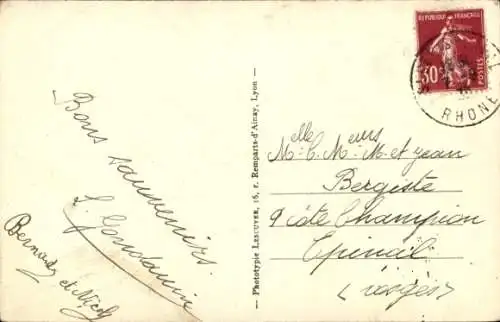 Bons souvenirs
L. Gourdanne
Bernard et Nicoly
Phototypie LESCUYER, 15, r. Remparts-d'Ainay, Lyon
REPUBLIQUE FRANÇAISE
30c
POSTES
RHONE
Melle C. Meurs M. et Jean
Bergiste
9 Côte Champion
Epinal
(Vosges)